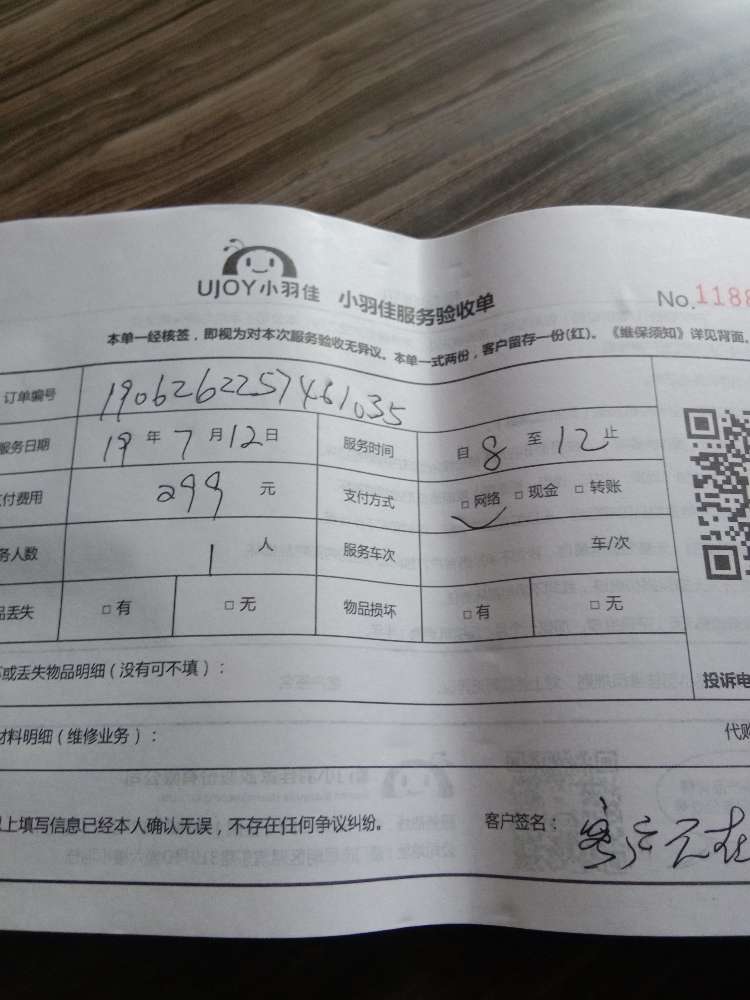 UJOY小羽佳 小羽佳服务验收单 No.1188
本单一经核签，即视为对本次服务验收无异议。本单一式两份，客户留存一份(红)。《维保须知》详见背面。
订单编号 1906262257481035
服务日期 19 年 7 月 12 日 服务时间 自 8 至 12 止
付费用 299 元 支付方式 □ 网络 □ 现金 □ 转账
务人数 1 人 服务车次 车/次
品丢失 □ 有 □ 无 物品损坏 □ 有 □ 无
或丢失物品明细（没有可不填）：
投诉电
材料明细（维修业务）： 代购
以上填写信息已经本人确认无误，不存在任何争议纠纷。 客户签名： 客户不在